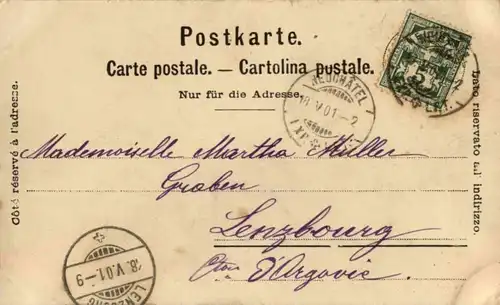 Postkarte.
Carte postale. — Cartolina postale.
Nur für die Adresse.
Côté réservé à l'adresse.
Lato riservato all'indirizzo.
NEUCHÂTEL
18.V.01.-2
Mademoiselle Martha Müller
Graben
Lenzbourg
Cton d'Argovie.
18.V.01.-9
LENZBURG
5